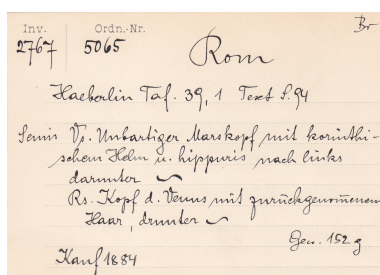 Br
Inv. Ordn.-Nr.
2767 5065
Rom
Haeberlin Taf. 39, 1 Text S. 94
Semis Vs. Unbärtiger Marskopf mit korinthi-
schem Helm u. hippuris nach links
darunter ~
Rs. Kopf d. Venus mit zurückgenommenem
Haar, drunter ~
Gew. 152 g
Kauf 1884